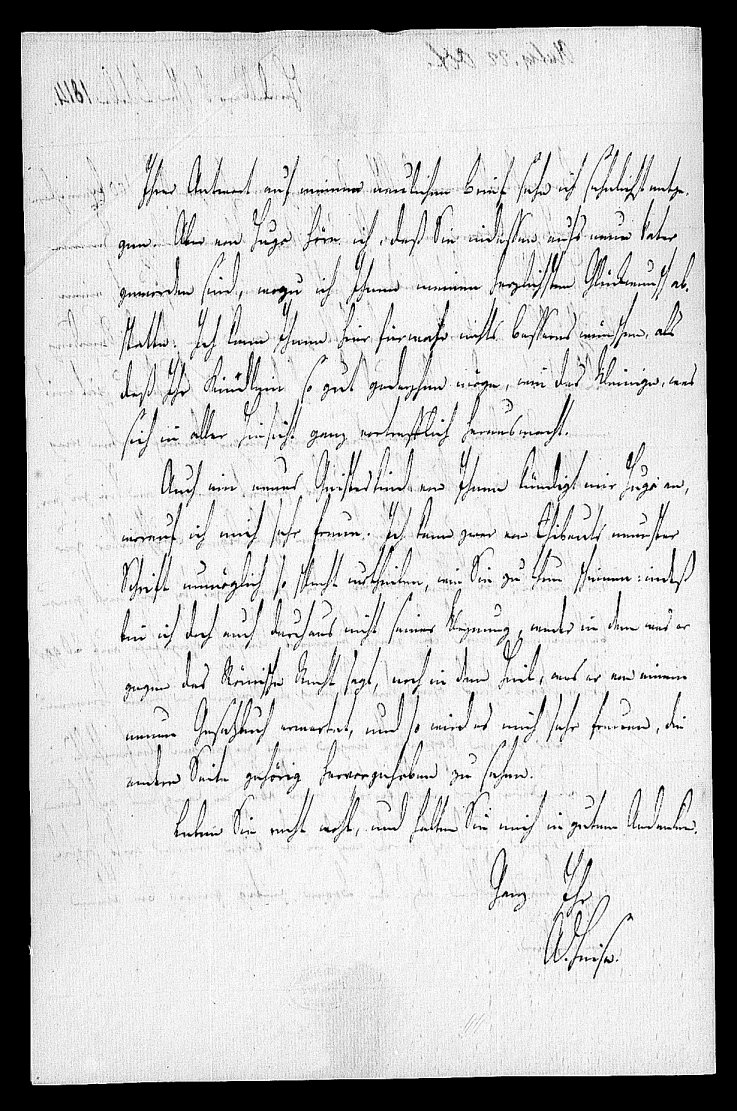 Ihrer Antwort auf meinen neulichen Brief sehe ich sehnlichst entge-
gen. Aber von Hugo höre ich, daß Sie indessen aufs neue Vater
geworden sind, wozu ich Ihnen meinen herzlichsten Glückwunsch ab-
statte. Ich kann Ihnen hier fürwahr nichts besseres wünschen, als
daß Ihr Kindlein so gut gedeyhen möge, wie das Meinige, was
sich in aller Hinsicht ganz vortrefflich herausmacht.
Auch ein neues Geisteskind von Ihnen kündigt mir Hugo an,
worauf ich mich sehr freue. Ich kann zwar von Thibauts neuster
Schrift unmöglich so schlecht urtheilen, wie Sie zu thun scheinen: indeß
bin ich doch auch durchaus nicht seiner Meynung, weder in dem was er
gegen das Römische Recht sagt, noch in dem Heil, was er von einem
neuen Gesetzbuch erwartet, und so wird es mich sehr freuen, die
andere Seite gehörig hervorgehoben zu sehen.
Leben Sie recht wohl, und halten Sie mich in gutem Andenken.
Ganz Ihr
A. Heise.